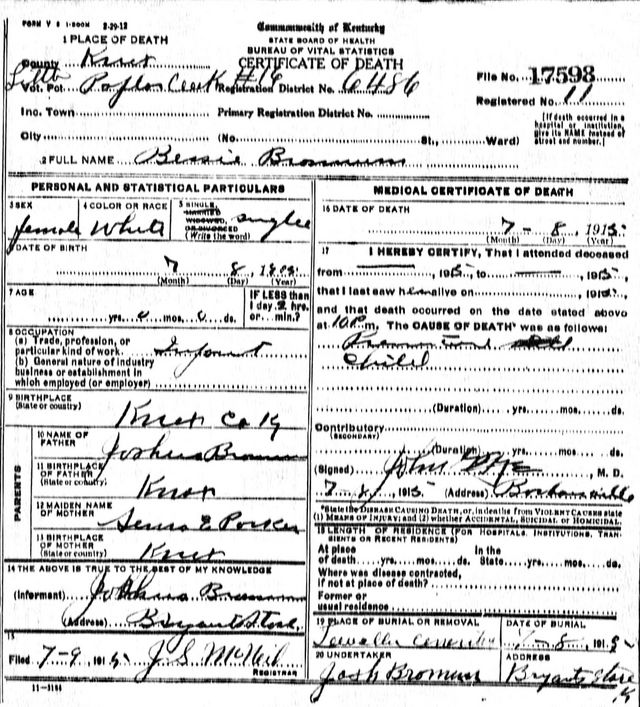 FORM V S 1-500M 2-29-12
Commonwealth of Kentucky
STATE BOARD OF HEALTH
BUREAU OF VITAL STATISTICS
CERTIFICATE OF DEATH
1 PLACE OF DEATH
County Knox
Vot. Pct. Poplar Creek #16 Registration District No. 6486
File No. 17598
Registered No. 11
Inc. Town Primary Registration District No.
[If death occurred in a hospital or institution, give its NAME instead of street and number.]
City (No. St., Ward)
2 FULL NAME Bessie
PERSONAL AND STATISTICAL PARTICULARS
3 SEX female
4 COLOR OR RACE White
5 SINGLE, MARRIED WIDOWED, OR DIVORCED (Write the word) single
6 DATE OF BIRTH
7 8, 1915
(Month) (Day) (Year)
7 AGE
yrs. 0 mos. 0 ds.
IF LESS than 1 day, 2 hrs. or...min.?
8 OCCUPATION
(a) Trade, profession, or particular kind of work Infant
(b) General nature of industry business or establishment in which employed (or employer)
9 BIRTHPLACE (State or country) Knox Co Ky
PARENTS
10 NAME OF FATHER Joshua
11 BIRTHPLACE OF FATHER (State or country) Knox
12 MAIDEN NAME OF MOTHER E Parker
13 BIRTHPLACE OF MOTHER (State or country) Knox
14 THE ABOVE IS TRUE TO THE BEST OF MY KNOWLEDGE
(Informant)
(Address) Bryants Store
15
Filed 7-9, 1915 J. S. McNeil
REGISTRAR
11-3184
MEDICAL CERTIFICATE OF DEATH
16 DATE OF DEATH
7 - 8, 1915
(Month) (Day) (Year)
17 I HEREBY CERTIFY, That I attended deceased
from , 1915, to , 1915,
that I last saw h alive on , 1915,
and that death occurred on the date stated above
at 10 P.m. The CAUSE OF DEATH* was as follows:
Child
(Duration) yrs. mos. ds.
Contributory
(SECONDARY)
(Duration) yrs. mos. ds.
(Signed) John, M. D.
7 8, 1915 (Address)
*State the DISEASE CAUSING DEATH, or, in deaths from VIOLENT CAUSES state (1) MEANS OF INJURY; and (2) whether ACCIDENTAL, SUICIDAL or HOMICIDAL.
18 LENGTH OF RESIDENCE (FOR HOSPITALS, INSTITUTIONS, TRANSIENTS OR RECENT RESIDENTS)
At place of death yrs. mos. ds. In the State yrs. mos. ds.
Where was disease contracted, if not at place of death?
Former or usual residence
19 PLACE OF BURIAL OR REMOVAL
DATE OF BURIAL
8, 1915
20 UNDERTAKER
Josh
ADDRESS
Bryants Store
Ky